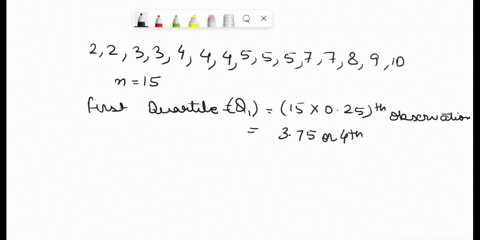 2,2, 3,3, 4, 4, 4,5, 5, 5,7,7, 8, 9,10
n=15
First Quartile (Q₁) = (15 × 0.25)th observation
= 3.75 or 4th